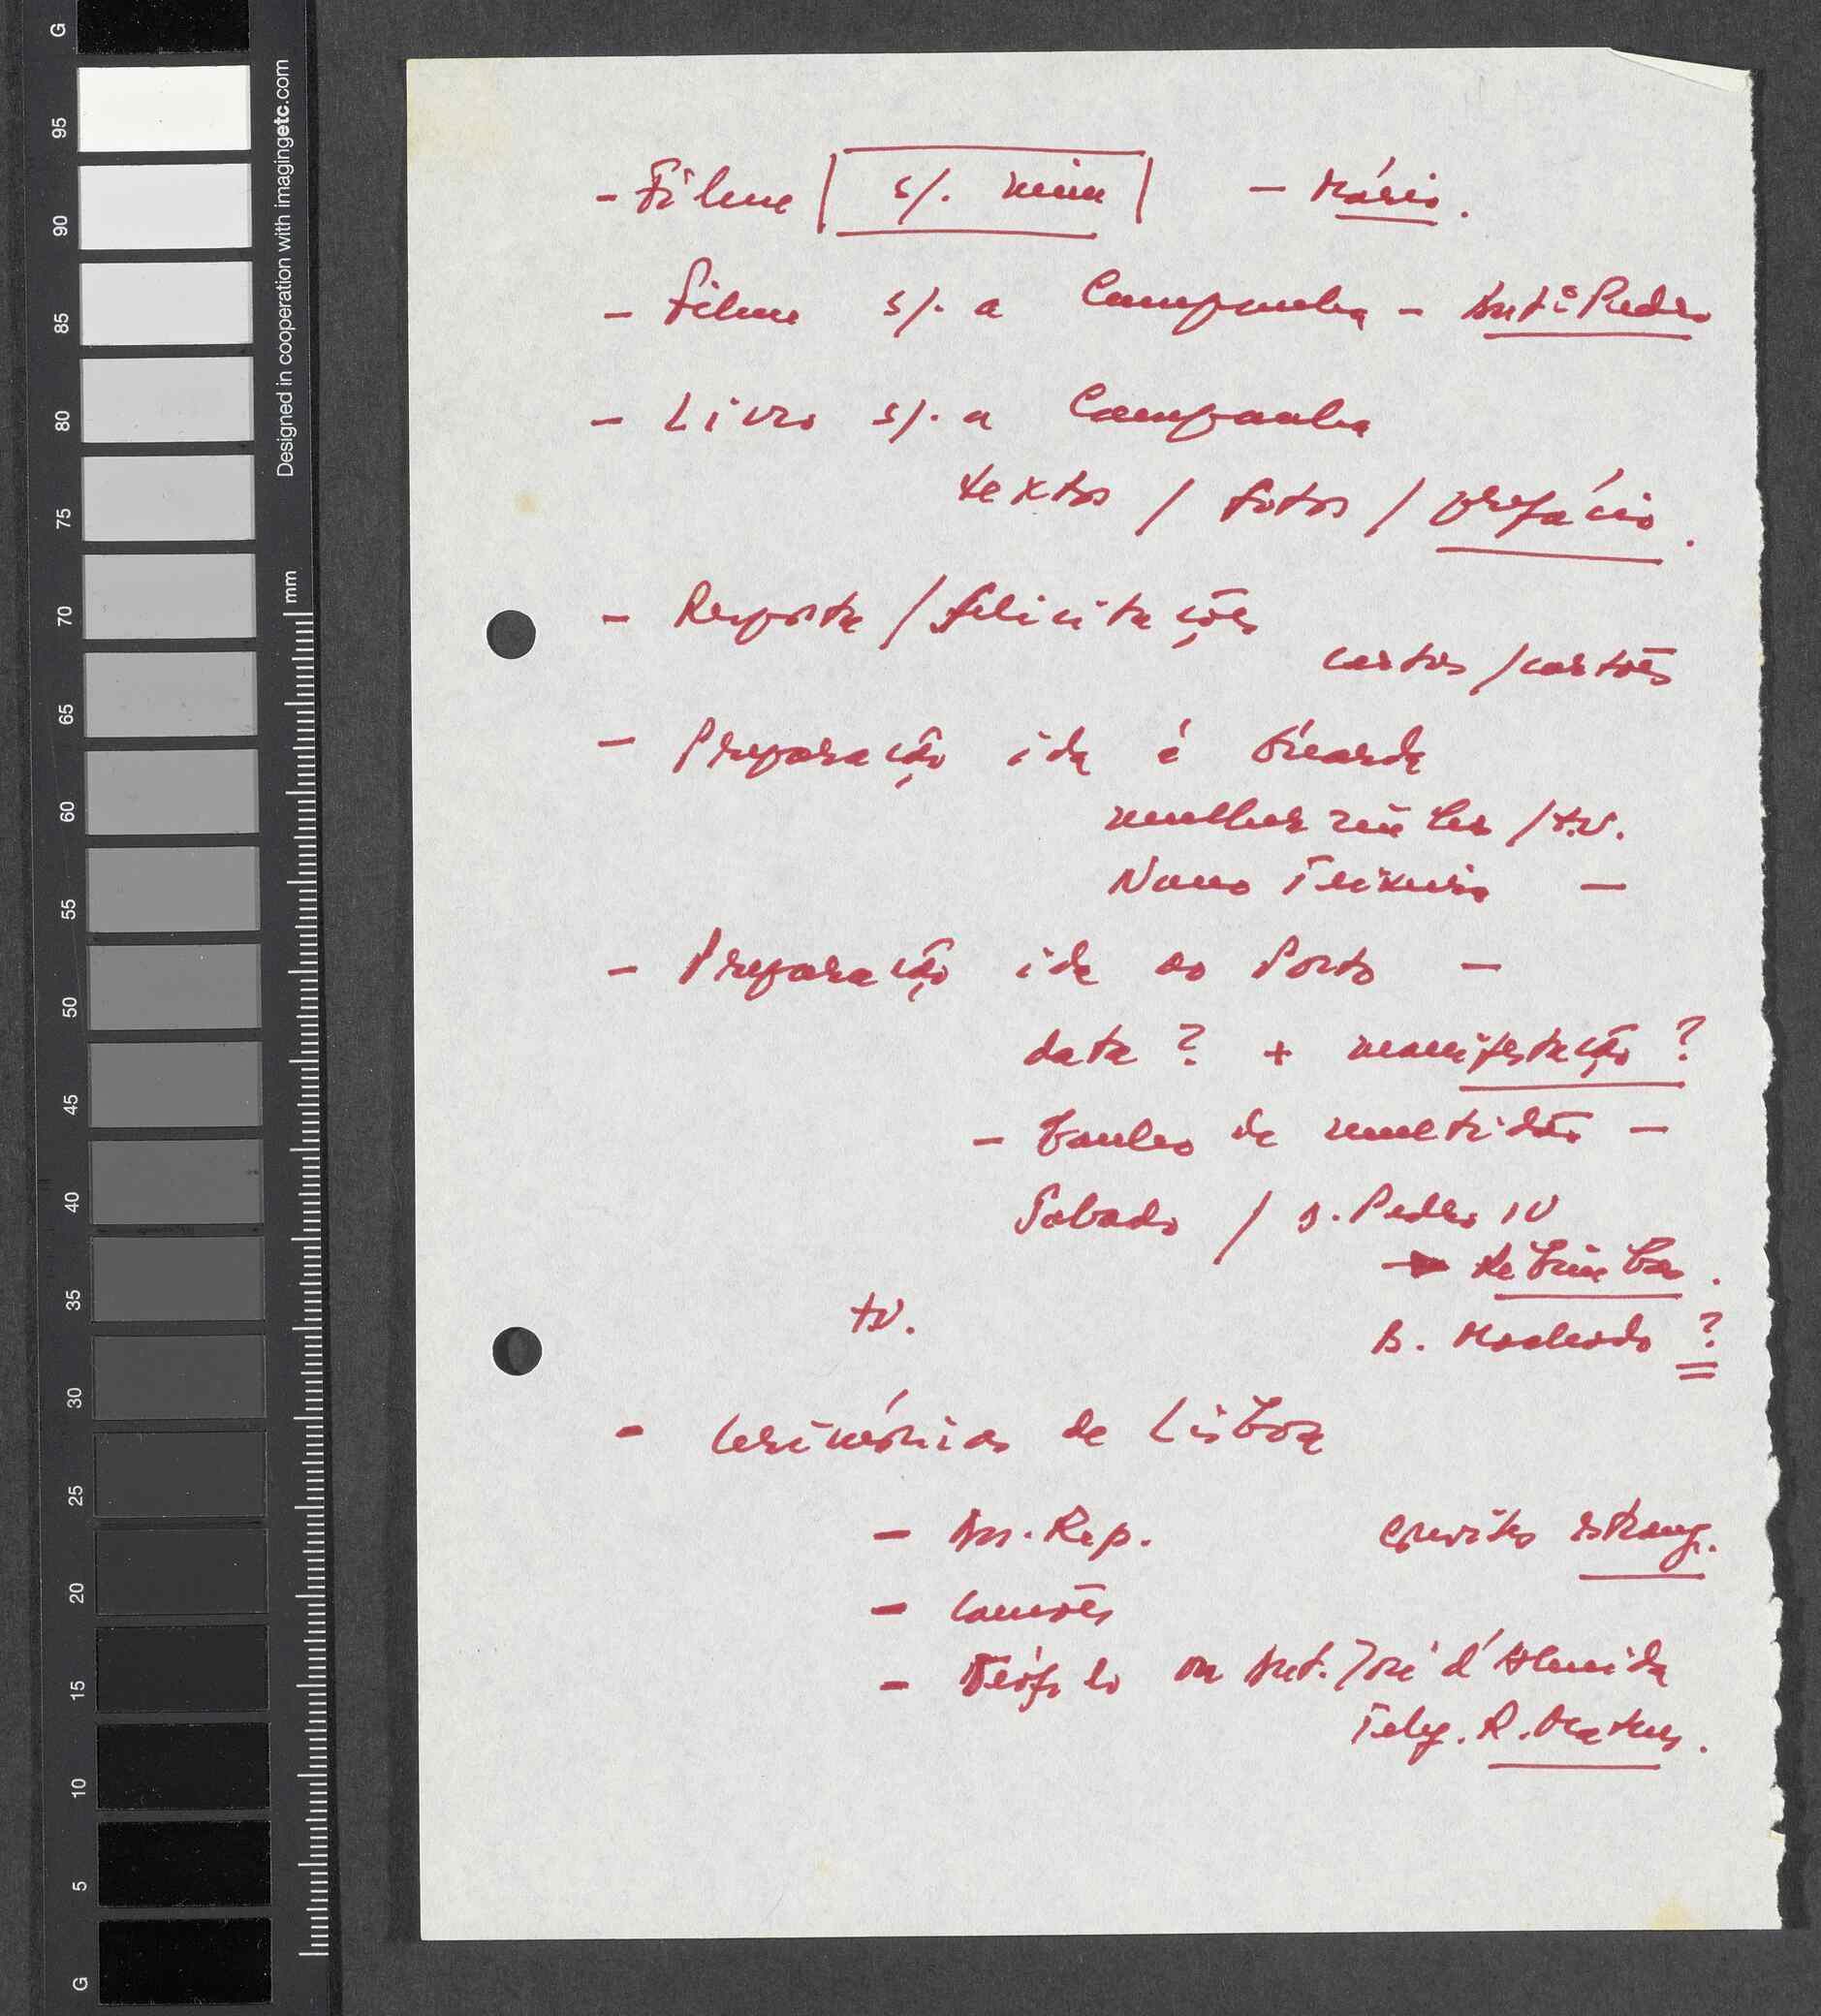 G
95
90
85
80
75
70
65
60
55
50
45
40
35
30
25
20
15
10
5
G
Designed in cooperation with imagingetc.com
mm
- Filme | s/. mim | - Mário.
- Filme s/. a Campanha - Antº Pedro
- Livro s/. a Campanha
textos / fotos / prefácio.
- Resposta / felicitações
cartas / cartões
- Preparação ida à Guarda
mulher / t.v.
Nuno Teixeira -
- Preparação ida ao Porto -
data ? + manifestação ?
- banho de multidão -
Sabado / D. Pedro IV
→ Ribeirinha.
tv.
B. Machado ?
- Cerimónias de Lisboa
- Ass. Rep. convites estrang.
- Camões
- Teófilo ou Ant. José d'Almeida
Telef. R. Mateus.